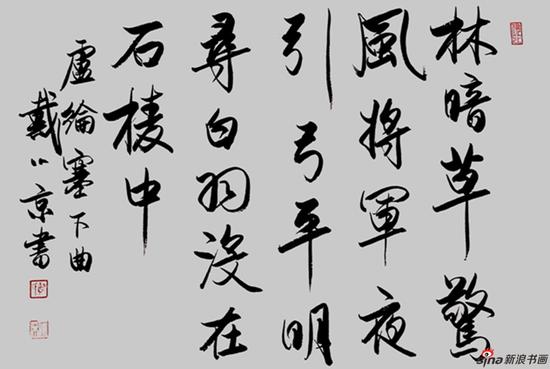 林暗草驚
風將軍夜
引弓平明
尋白羽沒在
石棱中
盧綸塞下曲
戴小京書
sina新浪书画